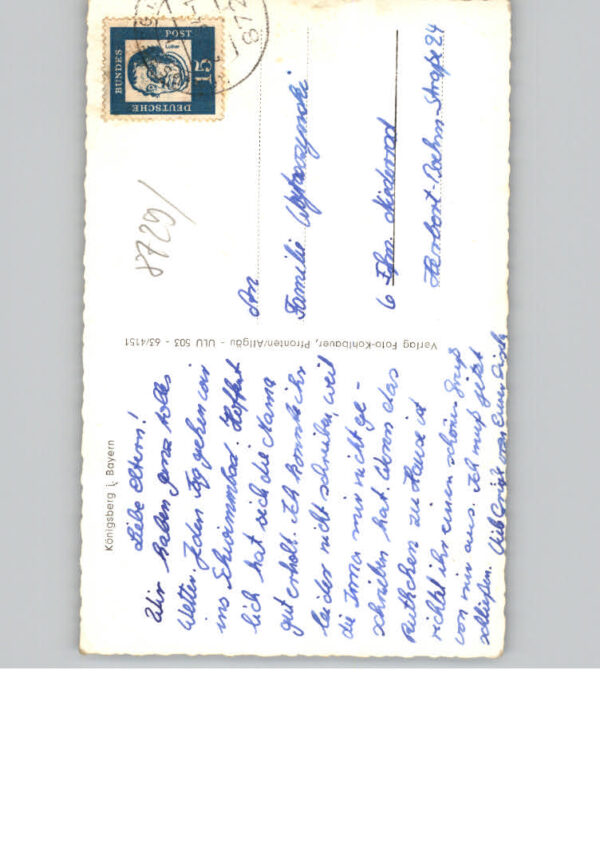 Königsberg i. Bayern
Liebe Eltern!
Wir haben ganz tolles
Wetter. Jeden Tag gehen wir
ins Schwimmbad. Hoffent
lich hat sich die Mama
gut erholt. Ich konnte ihr
leider nicht schreiben, weil
die Irma mir nicht ge-
schrieben hat. Wenn das
Ruthchen zu Hause ist
richtet ihr einen schönen Gruß
von mir aus. Ich muß jetzt
schließen. Viele Grüße von Eurer
Verlag Foto-Kohlbauer, Pfronten/Allgäu - ULU 503 - 63/4151
8729/
An
Familie
6 Ffm. Niederrad
Herbert-Boehm-Straße 24
DEUTSCHE
BUNDES
POST
15
872